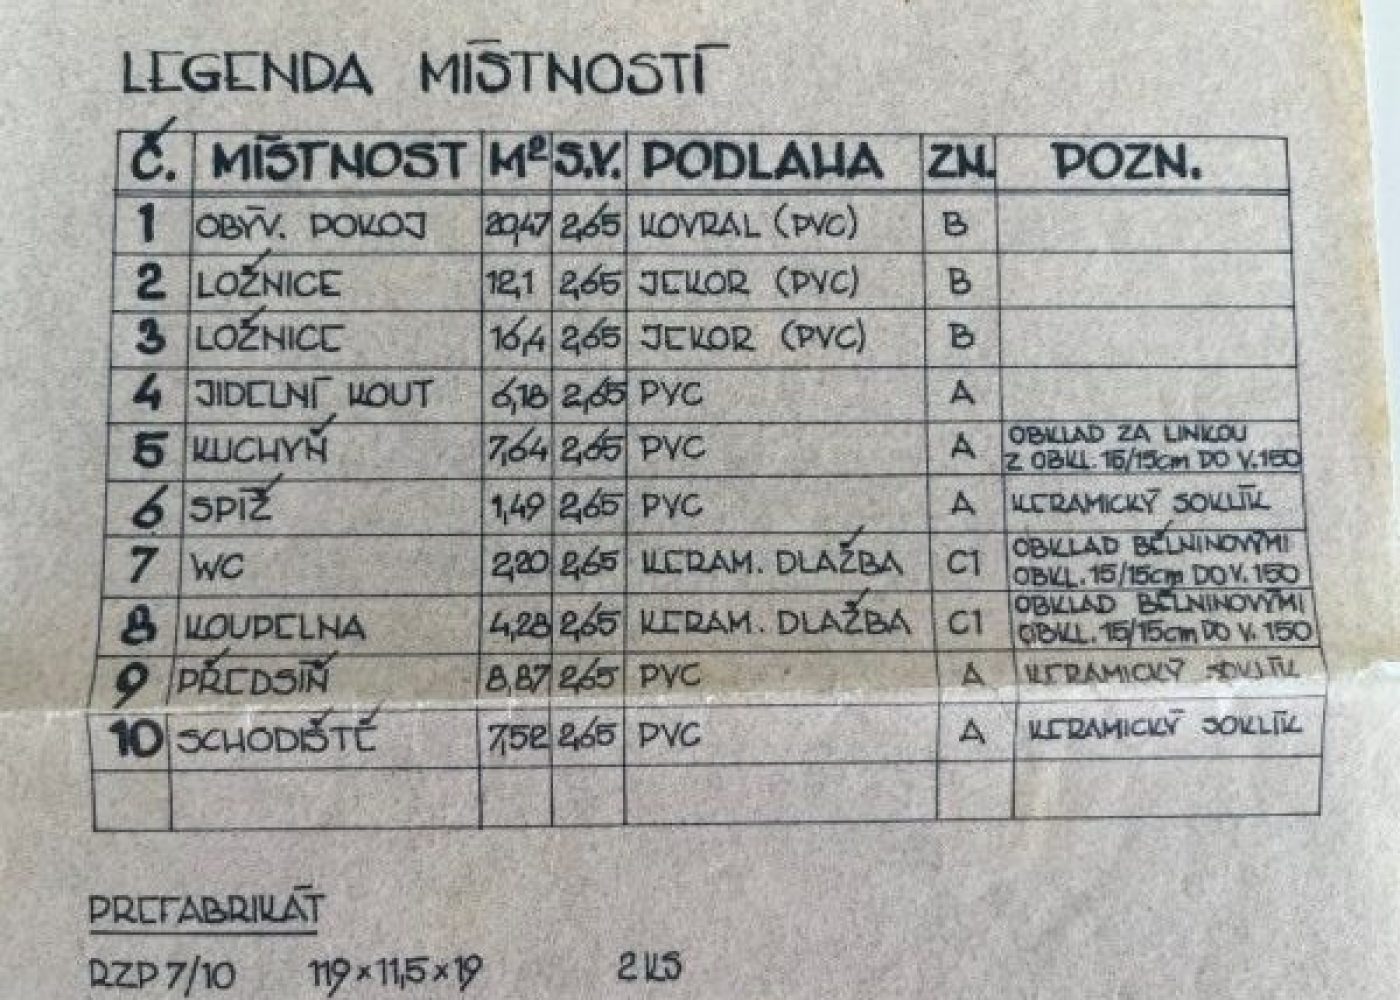 LEGENDA MÍSTNOSTÍ
Č. MÍSTNOST M² S.V. PODLAHA ZN. POZN.
1 OBÝV. POKOJ 20,47 2,65 KOVRAL (PVC) B
2 LOŽNICE 12,1 2,65 JEKOR (PVC) B
3 LOŽNICE 16,4 2,65 JEKOR (PVC) B
4 JIDELNÍ KOUT 6,18 2,65 PVC A
5 KUCHYŇ 7,64 2,65 PVC A OBKLAD ZA LINKOU
Z OBKL. 15/15cm DO V. 150
6 SPÍŽ 1,49 2,65 PVC A KERAMICKÝ SOKLÍK
7 WC 2,20 2,65 KERAM. DLAŽBA C1 OBKLAD BĚLNINOVÝMI
OBKL. 15/15cm DO V. 150
8 KOUPELNA 4,28 2,65 KERAM. DLAŽBA C1 OBKLAD BĚLNINOVÝMI
OBKL. 15/15cm DO V. 150
9 PŘEDSÍŇ 8,87 2,65 PVC A KERAMICKÝ SOKLÍK
10 SCHODIŠTĚ 7,52 2,65 PVC A KERAMICKÝ SOKLÍK
PREFABRIKÁT
RZP 7/10 119×11,5×19 2 KS